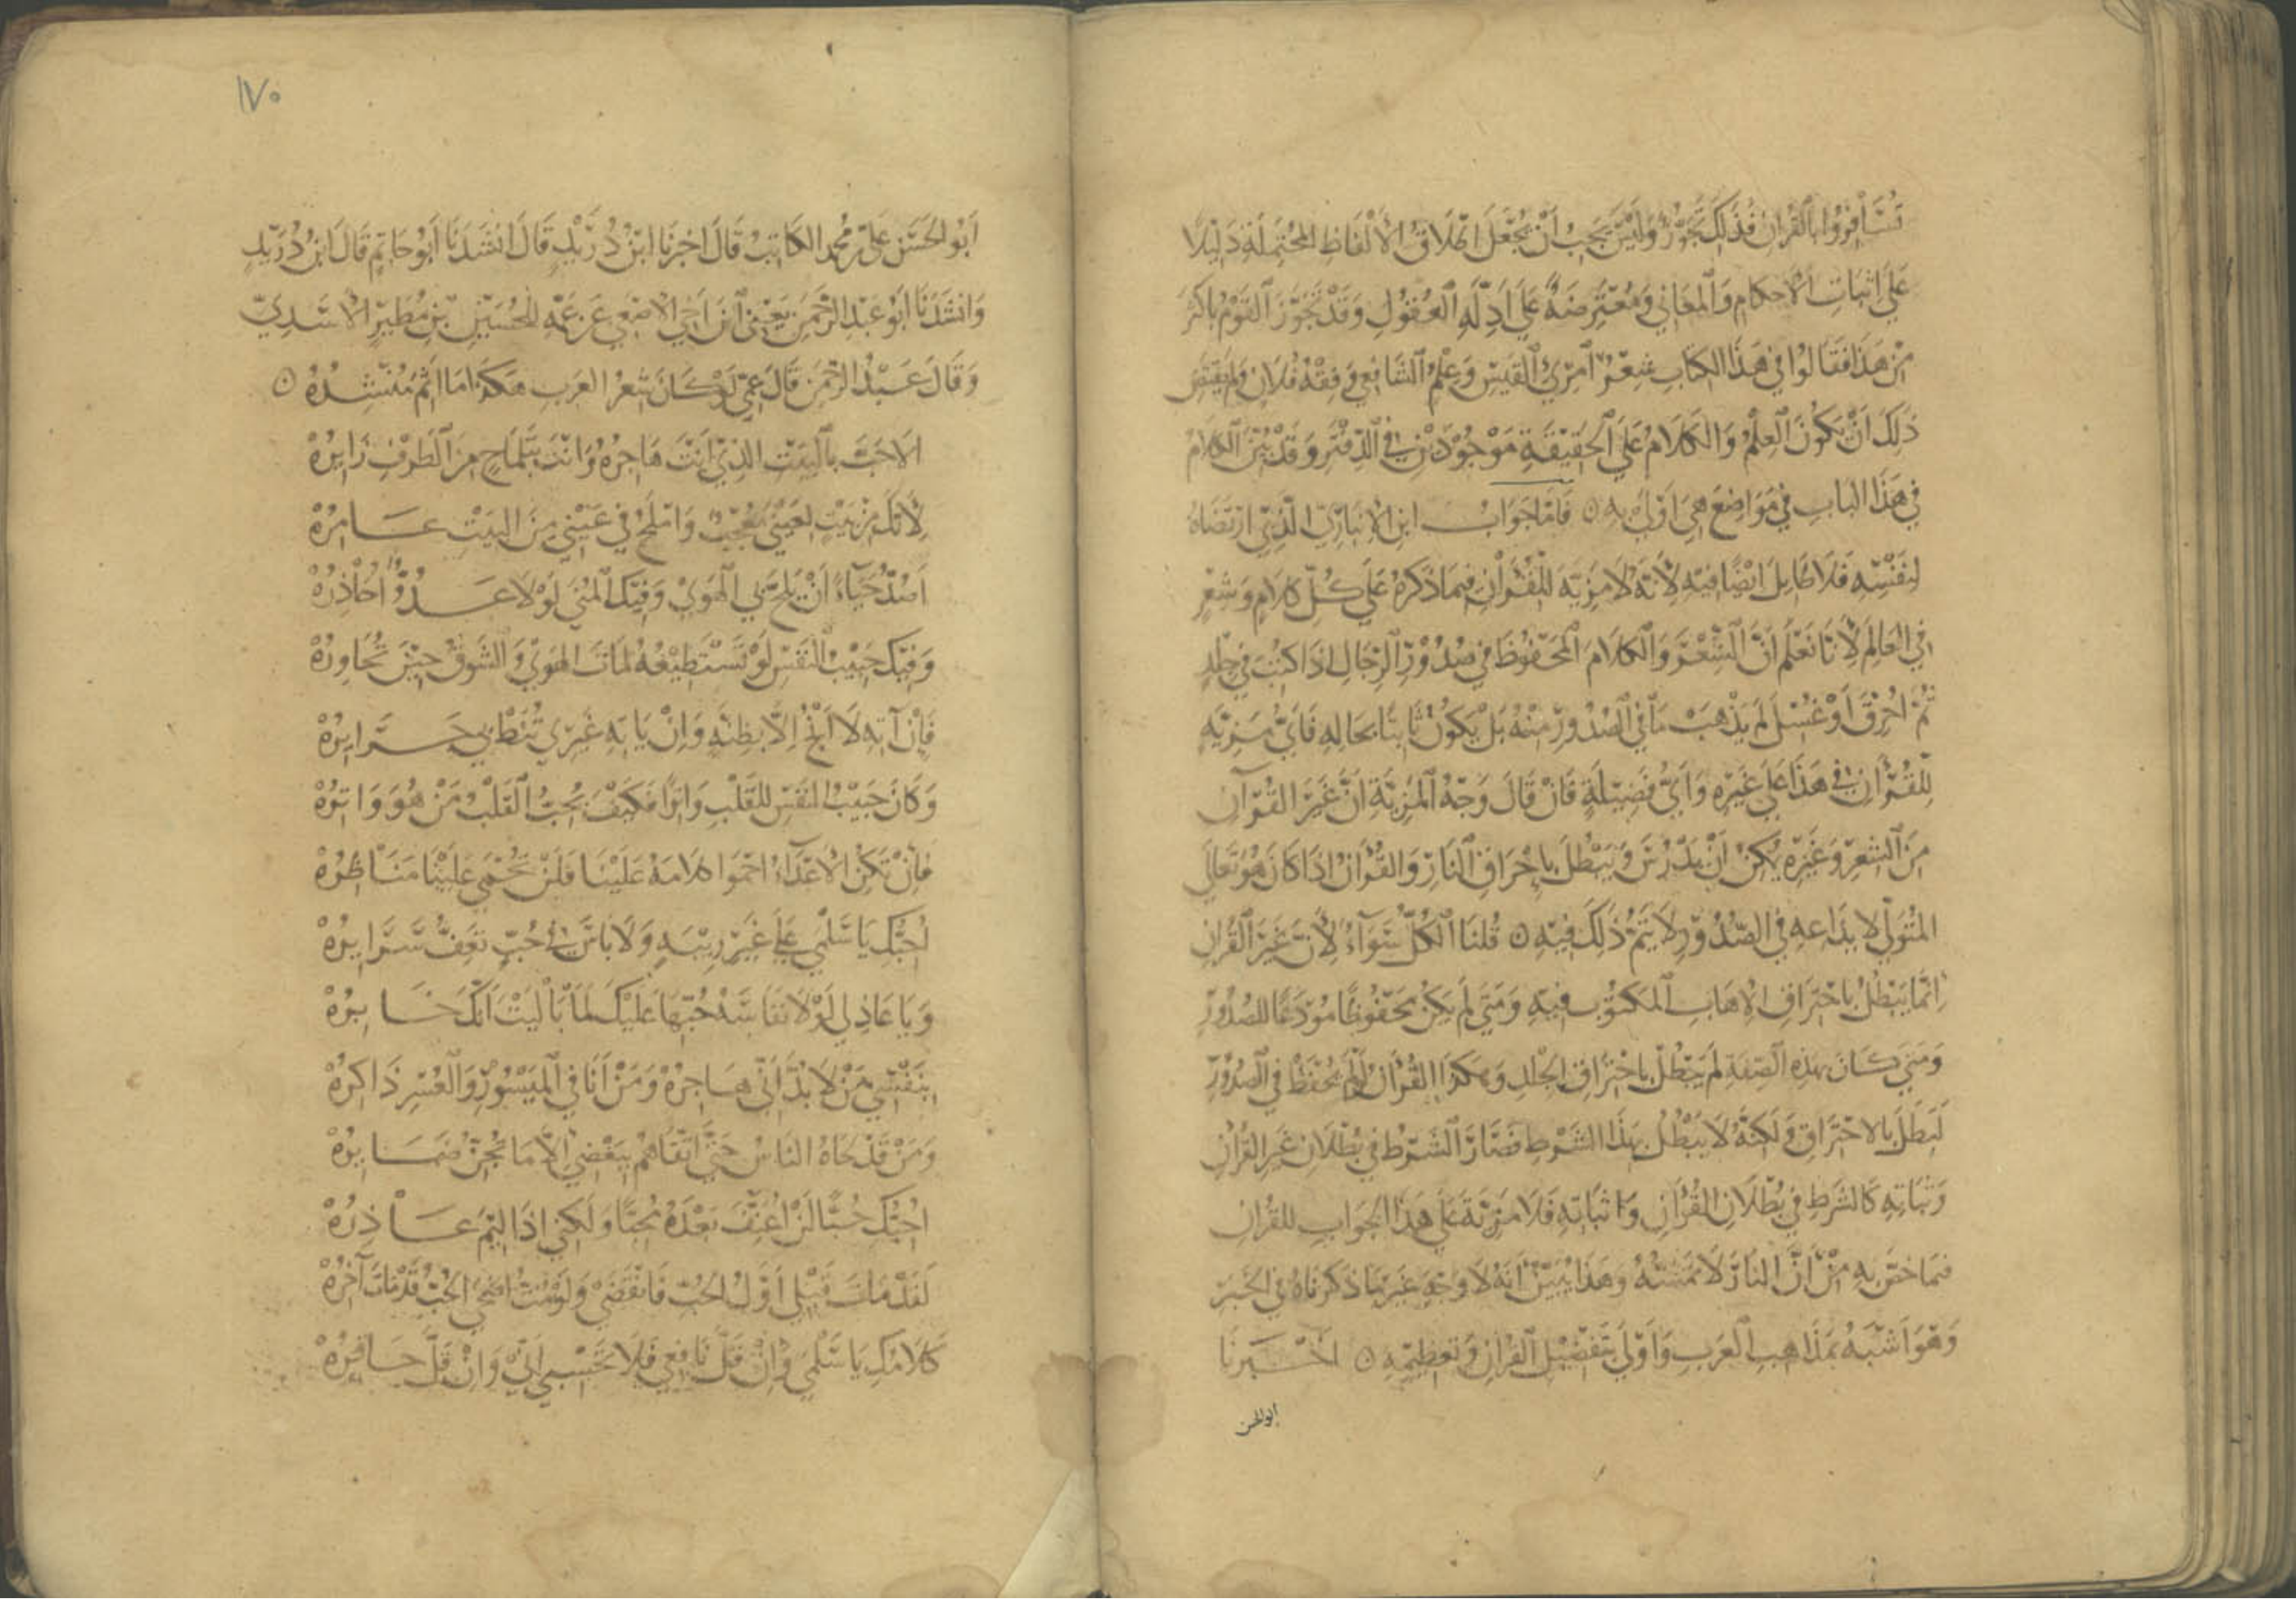 تُسَافِرُوا بالقُرآنِ فَذلِكَ تجوُّزٌ وَلَيْسَ يَجِبُ أنْ يُجْعَلَ اطْلَاقُ الأَلْفَاظِ المحْتَمِلَةِ دَلِيْلًا
عَلَى اثبَاتِ الأحكامِ وَالمعَاني وَمُعْتَرِضَةً عَلَى أدِلَّةِ العُقُولِ وَقَدْ تَجَوَّزَ القَوْمُ باكثَرَ
مِنْ هَذَا فَقَالُوا في هَذا الكتابِ شِعْرُ امرِئِ القَيْسِ وَعِلْمُ الشَّافِعي وَفِقْهُ فُلَانٍ وَلم يَقْتَضِ
ذلِكَ انْ يكُونَ العِلْمُ وَالكَلَامُ عَلى الحَقِيْقَةِ مَوْجُوْدَيْنِ في الدّفتَرِ وَقَدْ بُيّنَ الكلامُ
في هَذَا البابِ في مَوَاضِعَ هي اَوْلى بِهِ ۝ فَامَّا جَوَابُ ابنِ الانبَاريّ الَّذِيْ ارْتَضَاهُ
لنفْسِهِ فَلَا طَايِلَ ايْضًا فيْهِ لأنَّه لَا مَزِيَّةَ لِلْقُرآنِ فيمَا ذكَرهُ عَلَى كُلِّ كلَامٍ وَشِعْرٍ
في العَالم لِأَنَّا نَعْلَمُ انَّ الشِّعْرَ وَالكلَامَ المَحْفُوظَ في صُدُوْرِ الرّجَالِ اذَا كتُبَ في جِلْدٍ
ثُمّ اُحْرِقَ أوْ غُسِلَ لَم يَذْهَبْ مَا في الصُّدُورِ مِنْهُ بَلْ يَكُونُ ثَابتًا بحَالِهِ فَأيُّ مَزِيَّةٍ
لِلْقُرْآنِ في هَذَا عَلى غَيْرِهِ وَأَيُّ فَضِيْلَةٍ فَانْ قَالَ وَجْهُ المزِيَّةِ انَّ غَيْرَ القُرْآنِ
مِنَ الشِّعْرِ وَغَيْرِهِ يُمكِنُ انْ يَدْرُسَ وَيَبْطُلَ بِاِحْرَاقِ النَّارِ وَالقُرآنُ اذَا كَانَ هُوَ تَعَالَى
المتُوَلّي لايْدَاعِهِ في الصُّدُوْرِ لَا يَتِمُّ ذَلِكَ فِيْهِ ۝ قُلنَا الكُلُّ سَوَآءٌ لأَنَّ غَيْرَ القُرآنِ
اِنّما يَبْطُلُ باحْتِرَاقِ الاِهَابِ المكْتُوْبِ فِيْهِ وَمَتَى لَمْ يَكُنْ مَحْفُوظًا مُوْدَعًا للصُّدُوْرِ
وَمَتى كَانَ بهذِهِ الصِّفَةِ لَمْ يَبْطُلْ باحْتِرَاقِ الجِلْدِ وَهكذَا القُرآنُ لَوْلَمْ يُحْفَظْ في الصُّدُورِ
لَبَطَلَ بالاحْتِرَاقِ وَلَكِنَّهُ لَا يَبْطُلُ بهذَا الشَّرْطِ فَصَارَ الشَّرْطُ في بُطْلَانِ غَيْرِ القُرآنِ
وَثَبَاتِهِ كَالشَّرطِ في بُطْلَانِ القُرآنِ وَاثباتِهِ فَلَا مَزِيَّةَ عَلَى هَذَا الجَوابِ للقُرآنِ
فيمَا خُصَّ بِهِ مِنْ أنَّ النَارَ لَا تمسُّهُ وَهَذَا يُبَيّنُ انَّهُ لَا وَجْهَ غَيرُ مَا ذكَرنَاهُ في الخَبَرِ
وَهْوَ أشْبَهُ بمذَاهِبِ العَرَبِ وَأَوْلَى بتَفْضِيْلِ القُرآنِ وَتَعْظِيْمِهِ ۝ اخْبَرنَا
ابوالحسن
١٧٠
أبُو الحَسَنِ عَليّ بنُ محمد الكَاتِبُ قَالَ اخبرنَا ابنُ دُرَيْدٍ قَالَ انشَدَنَا ابُو حَاتِمٍ قَالَ ابنُ دُرَيْدٍ
وَانشَدَنَا ابُو عَبْدِ الرَّحْمنِ يَعْنى ابنَ اَخِي الاصْمَعي عَنْ عَمِّهِ للحُسَيْنِ بْنِ مُطَيرٍ الاسَدِيّ
وَقَالَ عَبْدُ الرّحمنِ قَالَ عَمّي لَوْ كَانَ شِعْرُ العَرَبِ هكذَا مَا اثِمَ مُنْشِدُهُ ۝
الاحَبَّ بالبَيْتِ الذِيْ انتَ هَاجِرُهْ وَانتَ بتَلْمَاحٍ مِنَ الطَّرْفِ زَايِرُهْ
لأنَّكَ مِنْ بَيْتٍ لعَيْني مُعْجِبٌ وَامْلَحُ في عَيْني مِنَ البَيْتِ عَامِرُهْ
اَصُدُّ حَيَآءً انْ يَلِجَّ بي الهَوَى وَفِيْكَ المُنَى لَوْلَا عَدُوٌّ اُحَاذِرُهْ
وَفِيْكَ حَبِيْبُ النَفْسِ لَوْ تَسْتَطِيْعُهُ لمَاتَ الهَوَى وَالشَّوْقُ حِيْنَ تُجَاوِرُهْ
فَاِنْ آتِهِ لَا اَنْجُ اِلَّا بِظِنَّةٍ وَاِنْ يَاتِهِ غَيْرِي تُنَطْ بي جَرَايِرُهْ
وَكَانَ حَبِيْبُ النَفْسِ لِلقَلْبِ وَاتِرًا فَكَيْفَ يُحِبُّ القَلْبُ مَنْ هُوَ وَاتِرُهْ
فَاِنْ تَكُنِ الاعْدَاءُ احْمَوا كلامَهُ عَلَيْنَا فَلَنْ تُحْمَى عَلَيْنَا مَنَاظِرُهْ
اُحِبُّكِ يَا سَلْمَى عَلَى غَيْرِ رِيْبَةٍ وَلَا بَاسَ في حُبٍّ تَعِفُّ سَرَايرُهْ
وَيَا عَاذِلي لَوْلَا نفَاسَةُ حُبّهَا عَلَيْكَ لمَا بَالَيْتَ أنَّكَ خَابِرُهْ
بنَفْسِي مَنْ لَا بُدَّ أنّي هَاجِرُهْ وَمَنْ أَنَا في المَيْسُوْرِ وَالعُسْرِ ذَاكِرُهْ
وَمَنْ قَدْ لحَاهُ النَّاسُ حَتّى اتقَاهُمُ ببَغْضِي الَّا مَا تُجِنُّ ضَمَايرُهْ
احِبُّكِ حُبًّا لَنْ اُعَنِّفَ بَعْدَهُ مُحِبًّا وَلَكِنّي اِذَا لِيْمَ عَاذِرُهْ
لَقَدْ مَاتَ قَبْلي أوَّلُ الحُبّ فَانْقَضَى وَلَوْ مُتُّ اضْحَى الحُبُّ قَدْ مَاتَ آخِرُهْ
كَلَامُكِ يَا سَلْمَى وَاِنْ قَلَّ نَافِعِي فَلَا تَحْسَبِي أنّي وَاِنْ قَلَّ حَاقِرُهْ